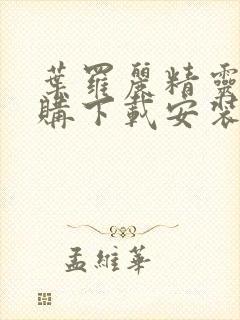 葉羅麗精靈
購下載安裝
孟維華